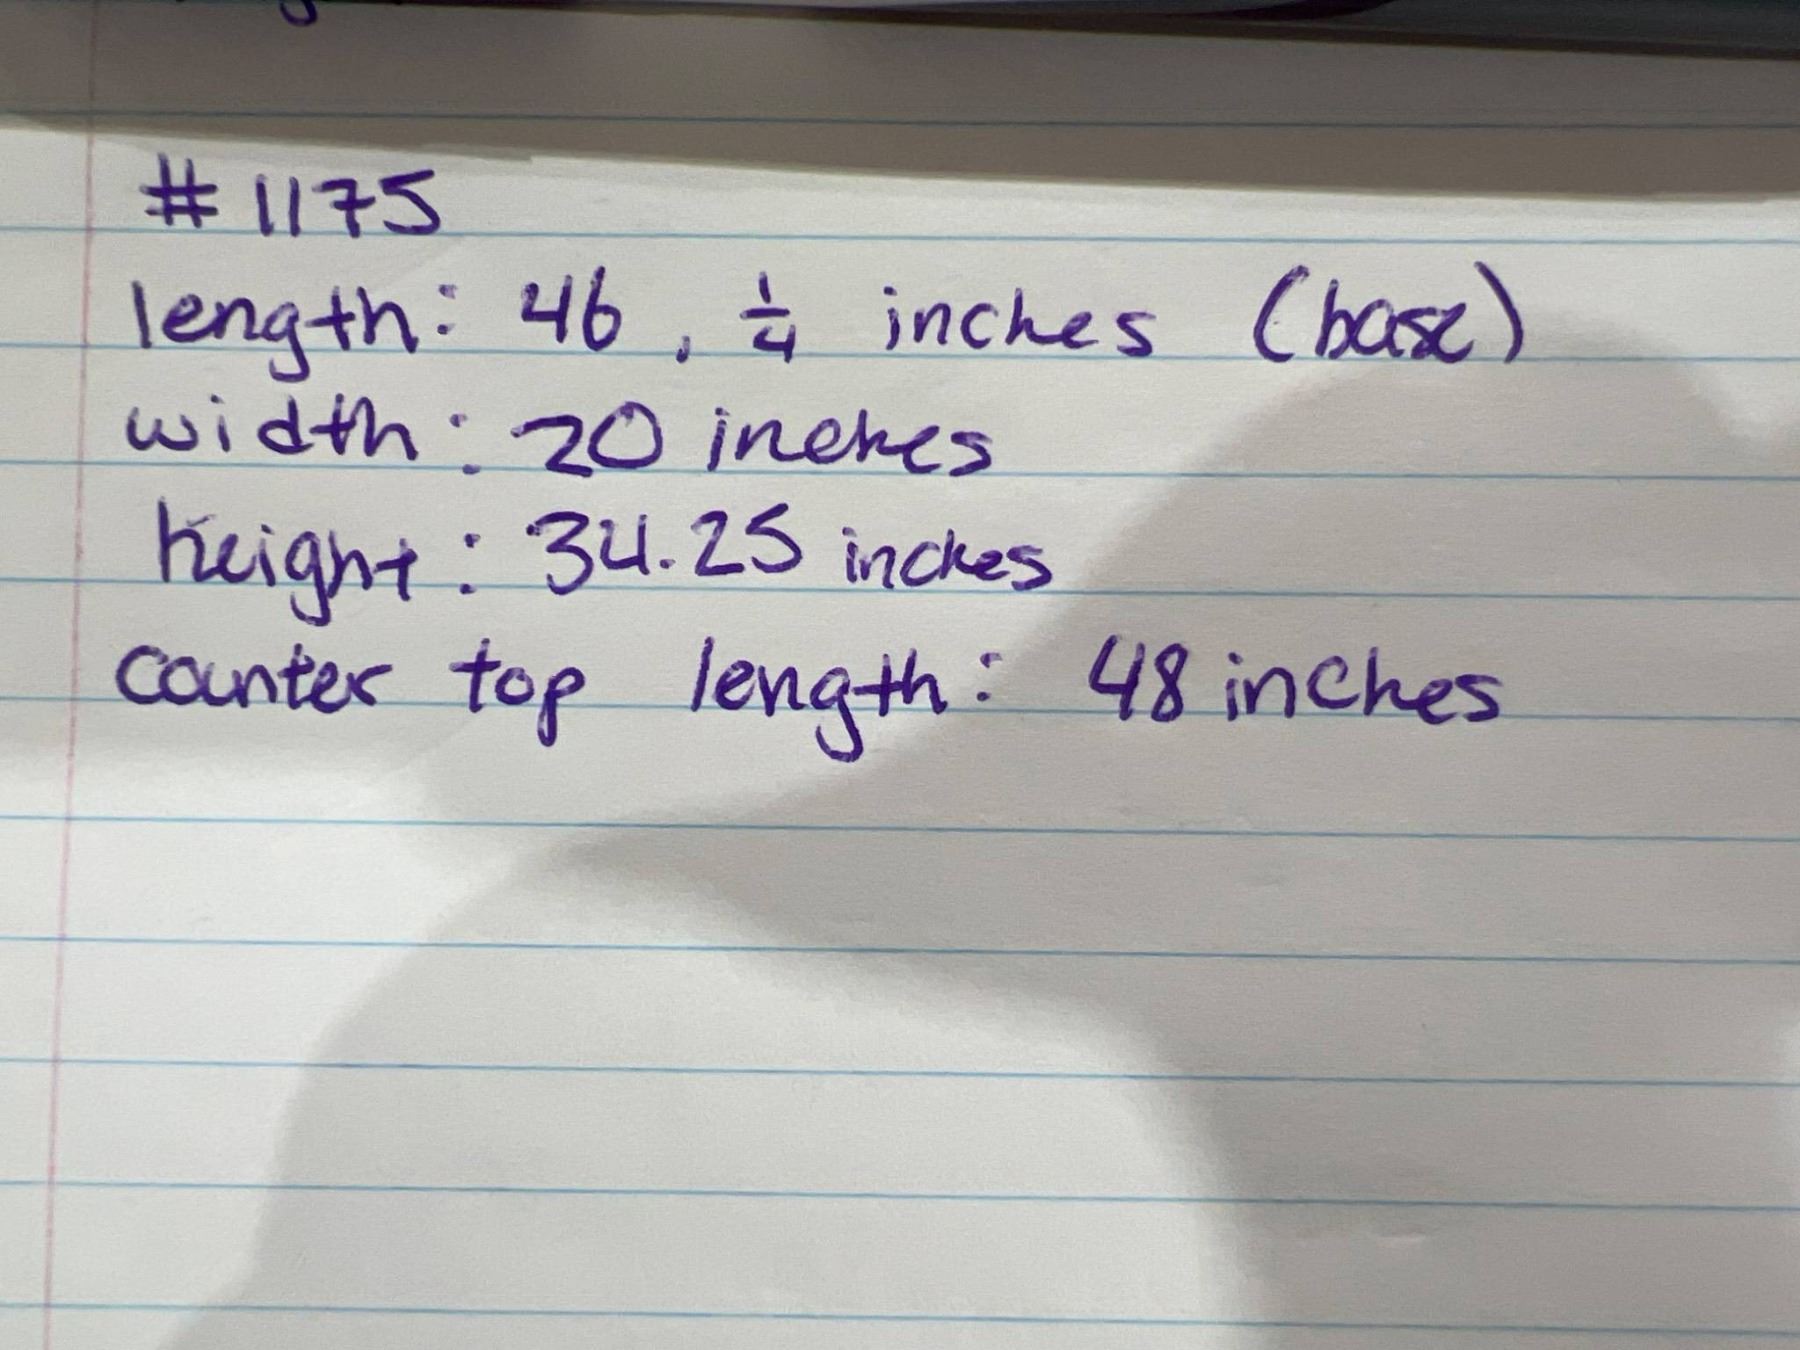 #1175
length: 46, 1/4 inches (base)
width: 20 inches
height: 34.25 inches
counter top length: 48 inches